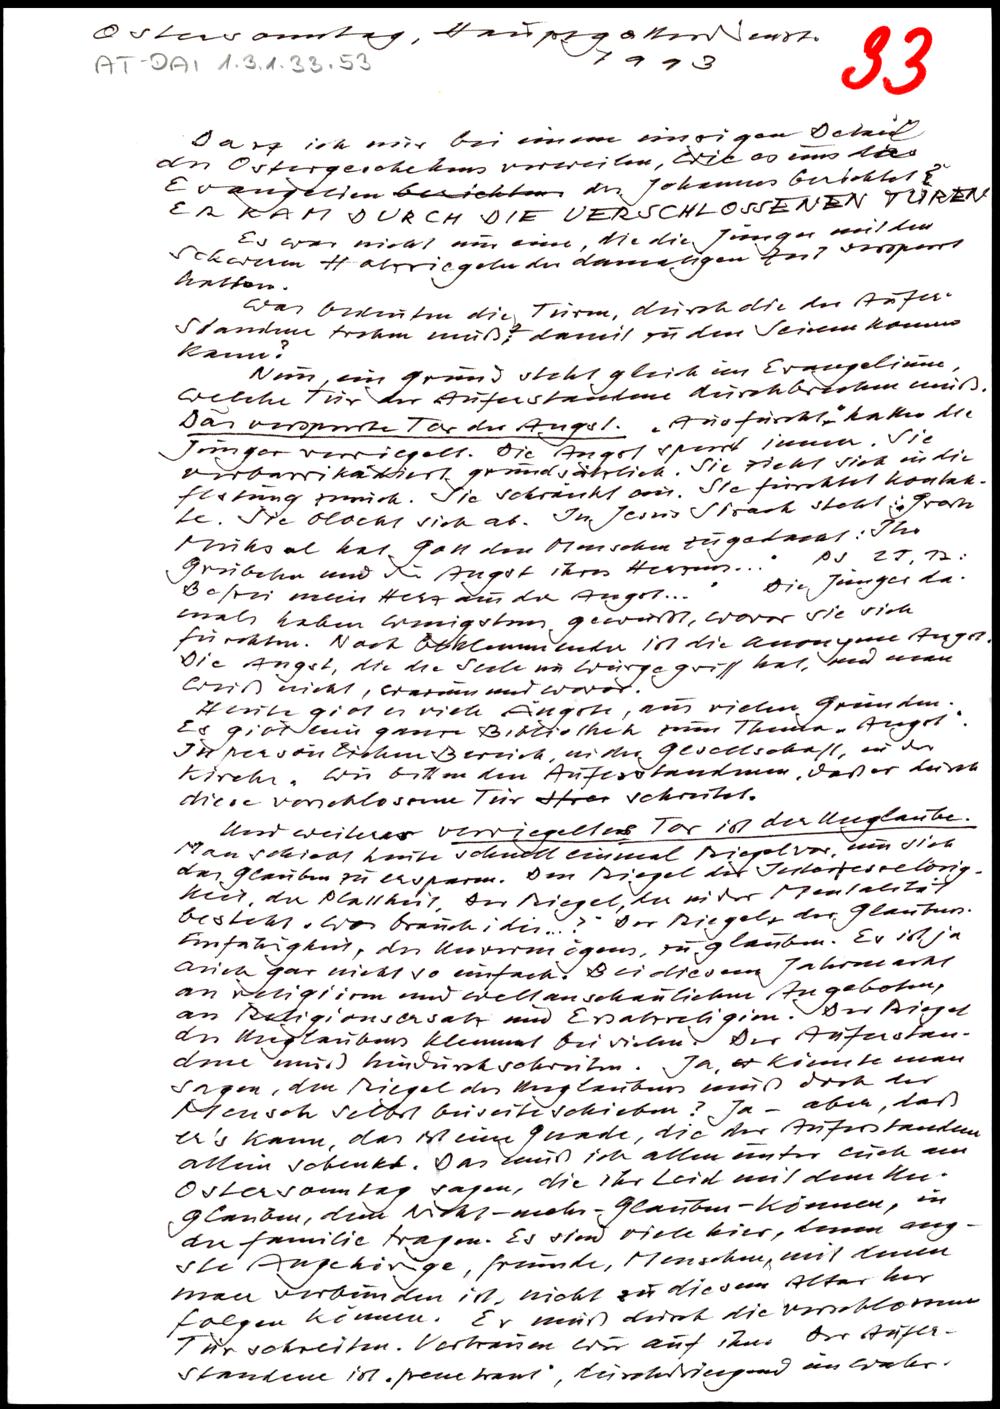 Ostersonntag, Hauptgottesdienst.
1993
93
AT-DAI 1.3.1.33.53
Darf ich nur bei einem einzigen Detail
des Ostergeschehens verweilen, wie es uns das
Evangelien berichten des Johannes berichtet?
ER KAM DURCH DIE VERSCHLOSSENEN TÜREN
Es war nicht nur eine, die die Jünger mit den
schweren Holzriegeln der damaligen Zeit versperrt
hatten.
Was bedeuten die Türen, durch die der Aufer-
standene treten muß, damit er zu den Seinen kommen
kann?
Nun, ein Grund steht gleich im Evangelium,
welche Tür der Auferstandene durchbrechen muß.
Das versperrte Tor der Angst. „Aus Furcht" hatten die
Jünger verriegelt. Die Angst sperrt immer. Sie
verbarrikadiert grundsätzlich. Sie zieht sich in die
Festung zurück. Sie schränkt ein. Sie fürchtet Kontak-
te. Sie blockt sich ab. In Jesus Sirach steht: „Große
Mühsal hat Gott den Menschen zugedacht: Ihr
Grübeln und die Angst ihres Herzens..." Ps 25, 17:
Befrei mein Herz aus der Angst..." Die Jünger da-
mals haben wenigstens gewußt, wovor sie sich
fürchten. Noch beklemmender ist die anonyme Angst.
Die Angst, die die Seele im Würgegriff hat, und man
weiß nicht, warum und wovor.
Heute gibt es viele Ängste, aus vielen Gründen.
Es gibt eine ganze Bibliothek zum Thema „Angst".
Im persönlichen Bereich, in der Gesellschaft, in der
Kirche. Wir bitten den Auferstandenen, daß er durch
diese verschlossene Tür schreitet.
Und weiteres verriegeltes Tor ist der Unglaube.
Man schiebt heute schnell einmal Riegel vor, um sich
das Glauben zu ersparen. Den Riegel der Interesselosig-
keit, der Plattheit, Der Riegel, der in der Mentalität
besteht „Was brauch i des...?" Der Riegel der Glaubens-
unfähigkeit, des Unvermögens, zu glauben. Es ist ja
auch gar nicht so einfach. Bei diesem Jahrmarkt
an religiösen und weltanschaulichen Angeboten,
an Religionsersatz und Ersatzreligion. Der Riegel
des Unglaubens klemmt bei vielen. Der Auferstan-
dene muß hindurchschreiten. Ja, könnte man
sagen, den Riegel des Unglaubens muß doch der
Mensch selbst beiseiteschieben? Ja – aber, daß
er's kann, das ist eine Gnade, die der Auferstandene
allein schenkt. Das muß ich allen unter euch am
Ostersonntag sagen, die ihr Leid mit dem Un-
glauben, dem Nicht-mehr-Glauben-Können, in
der Familie tragen. Es sind viele hier, denen eng-
ste Angehörige, Freunde, Menschen, mit denen
man verbunden ist, nicht zu diesem Altar her
folgen können. Er muß durch die verschlossene
Tür schreiten. Vertrauen wir auf ihn. Der Aufer-
standene ist „penetrant", durchdringend im wahr-